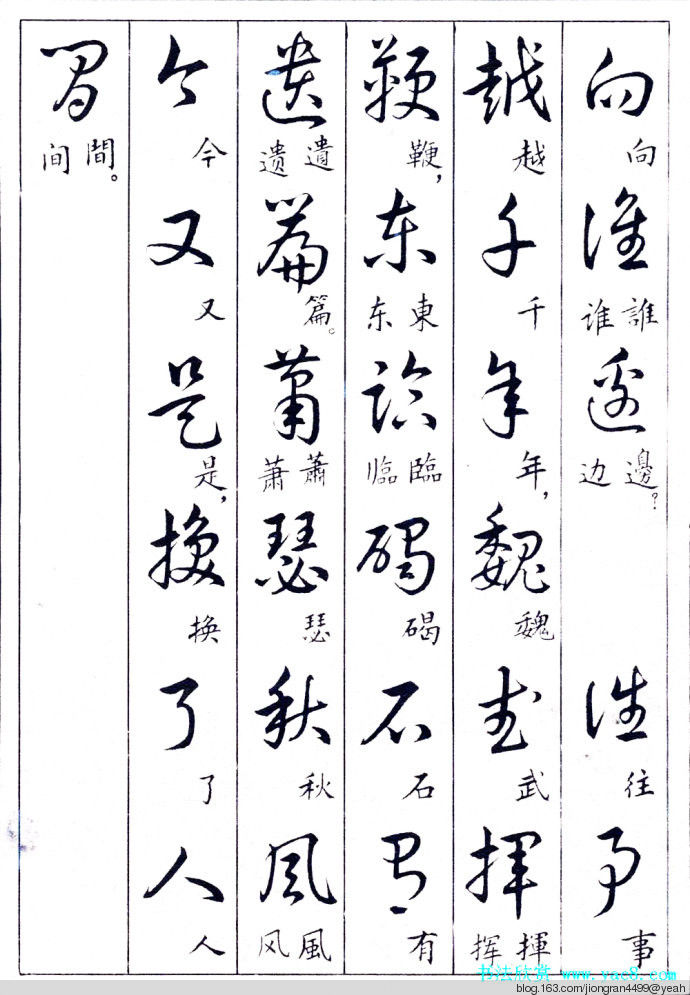 向 向 誰 誰 谁 邊 邊？ 边 往 往 事 事
越 越 千 千 年 年， 魏 魏 武 武 揮 揮 挥
鞭 鞭， 東 東 东 臨 臨 临 碣 碣 石 石 有 有
遺 遺 遗 篇 篇。 蕭 蕭 萧 瑟 瑟 秋 秋 風 風 风
今 今 又 又 是 是， 換 换 了 了 人 人
間 間。 间
书法欣赏 www.yac8.com
blog.163.com/jiongran4499@yeah